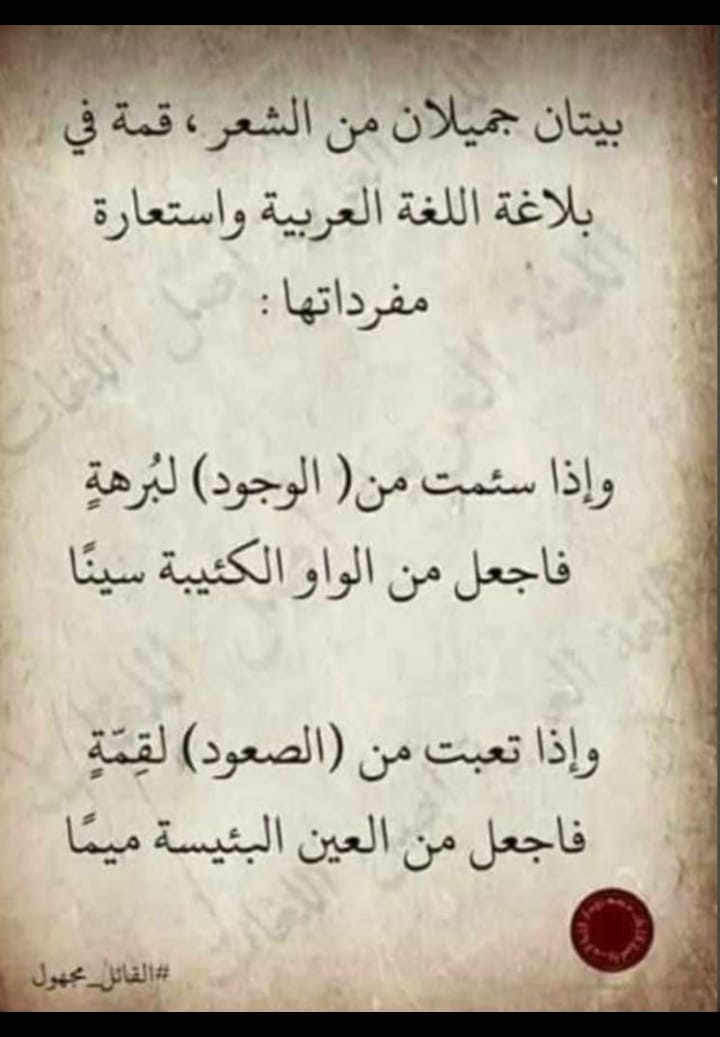 بيتان جميلان من الشعر ، قمة في
بلاغة اللغة العربية واستعارة
مفرداتها :
وإذا سئمت من( الوجود) لبُرهةٍ
فاجعل من الواو الكئيبة سينًا
وإذا تعبت من (الصعود) لقِمّةٍ
فاجعل من العين البئيسة ميمًا
#القائل_مجهول